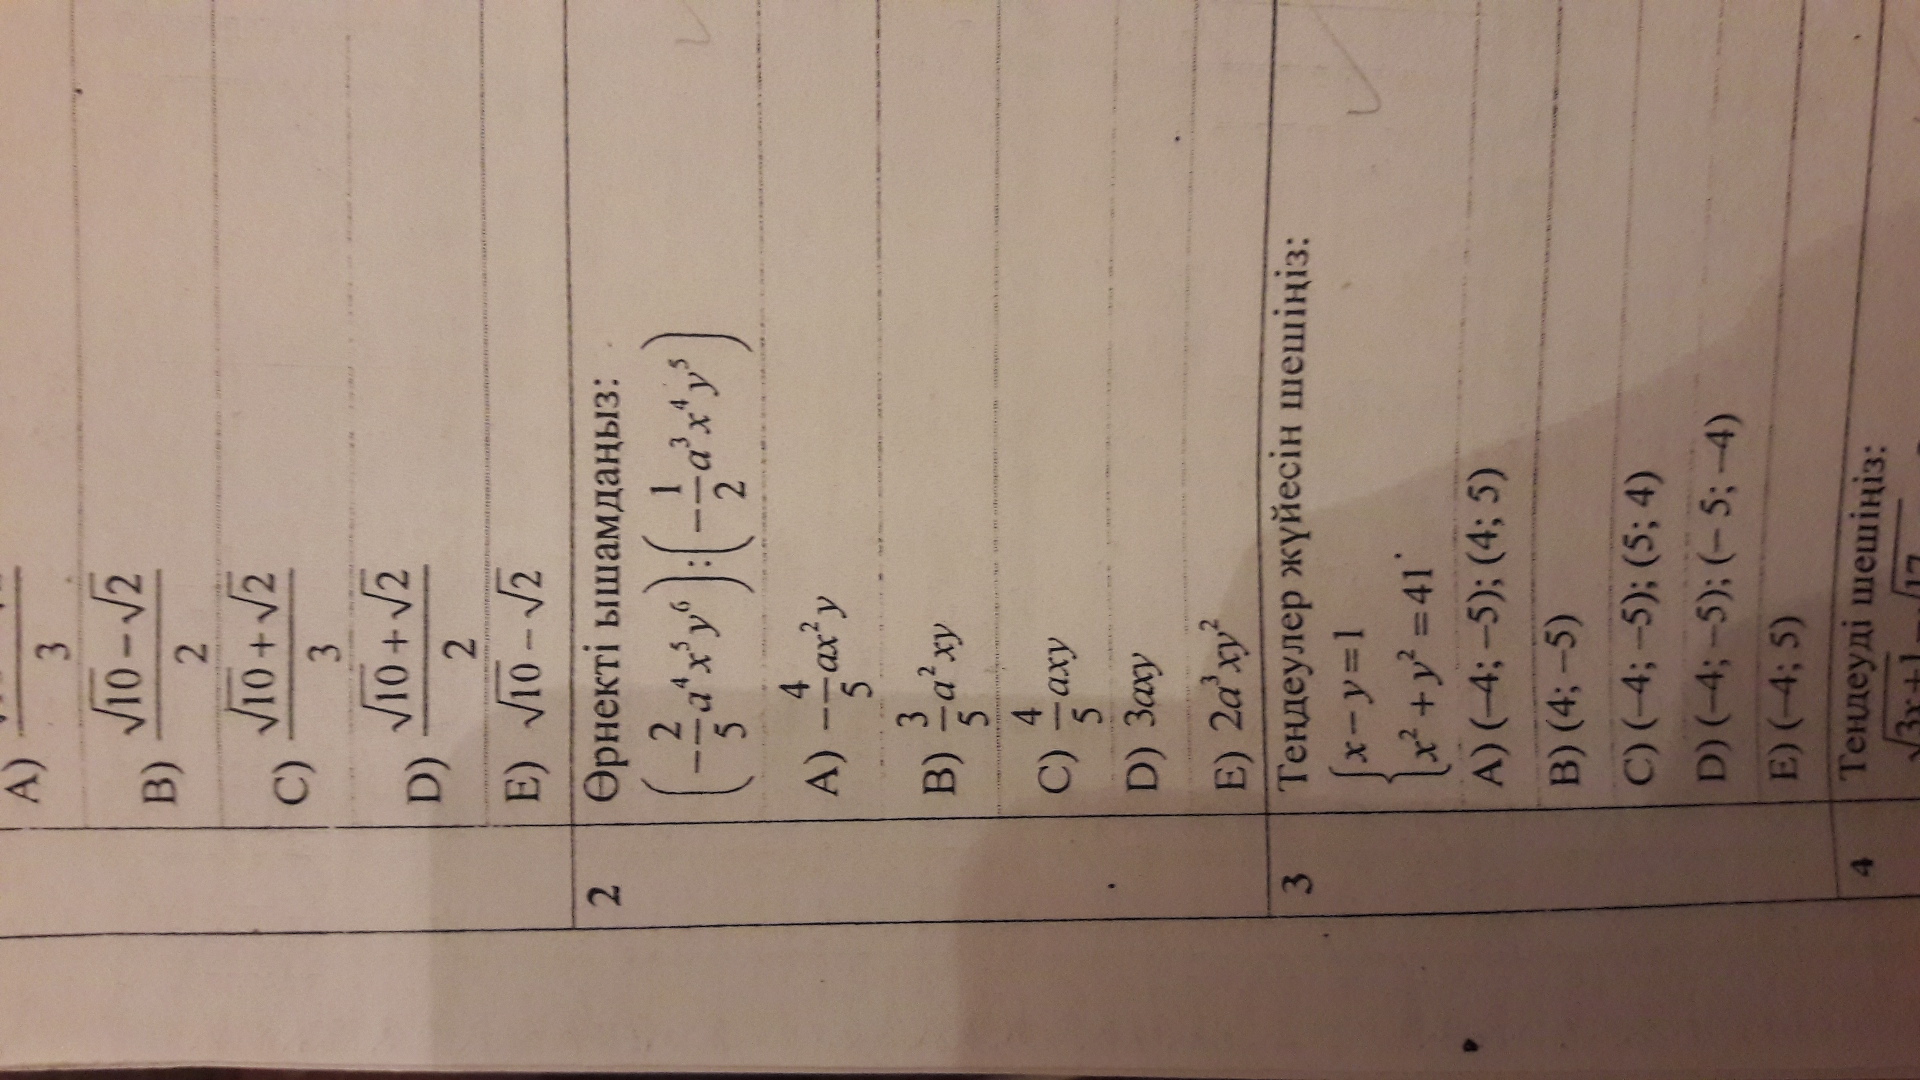 A) 3
B) (√10 − √2)/2
C) (√10 + √2)/3
D) (√10 + √2)/2
E) √10 − √2
2 Өрнекті ышамдаңыз:
(−2/5 a⁴x⁵y⁶) : (−1/2 a³x⁴y⁵)
A) −4/5 ax²y
B) 3/5 a²xy
C) 4/5 axy
D) 3axy
E) 2a³xy²
3 Теңдеулер жүйесін шешіңіз:
{x − y = 1
{x² + y² = 41.
A) (−4; −5); (4; 5)
B) (4; −5)
C) (−4; −5); (5; 4)
D) (−4; −5); (− 5; −4)
E) (−4; 5)
4 Теңдеуді шешіңіз:
√3x+1 − √17